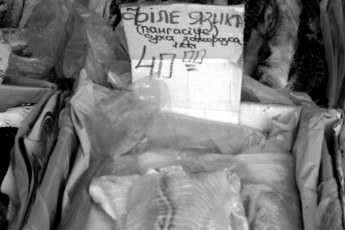 ФІЛЕ ЯЗИКА
(пангасіус)
суха заморозка
1 кг
40 00